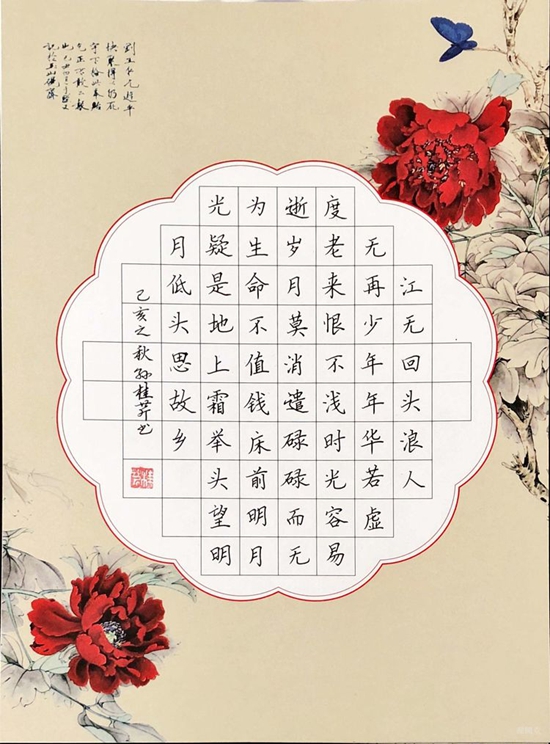 江无回头浪人
无再少年年华若虚
度老来恨不浅时光容易
逝岁月莫消遣碌碌而无
为生命不值钱床前明月
光疑是地上霜举头望明
月低头思故乡
己亥之秋孙桂书